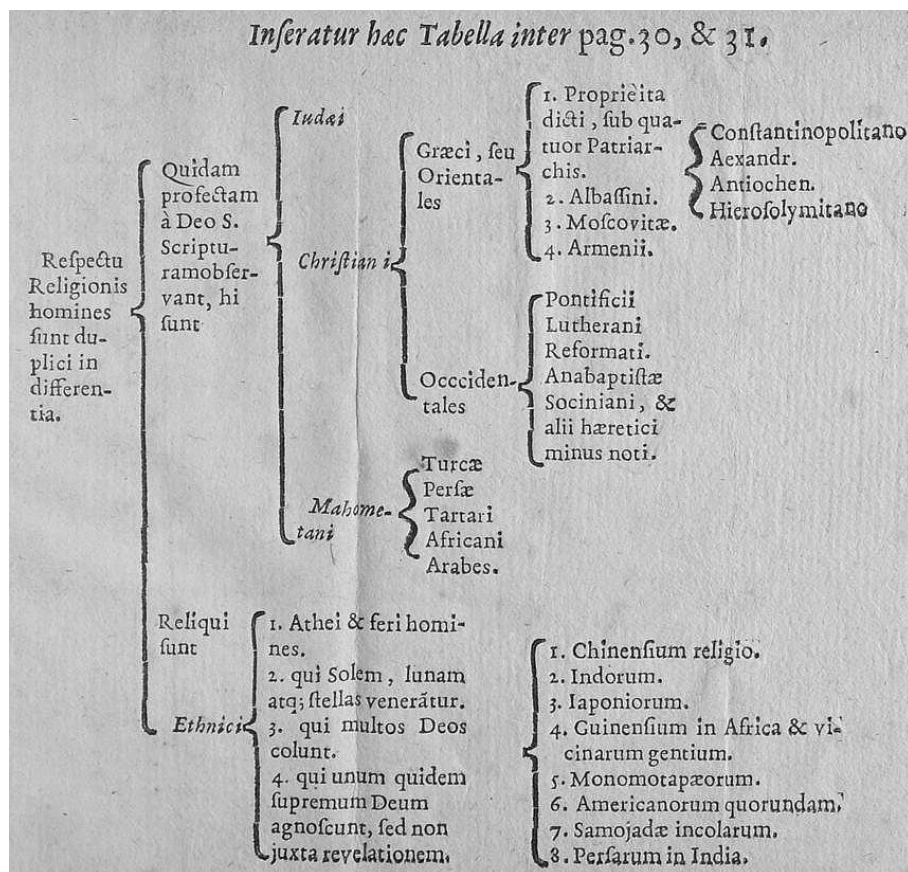 Inſeratur hæc Tabella inter pag. 30, & 31.
Reſpectu
Religionis
homines
ſunt du-
plici in
differen-
tia.
Quidam
profectam
à Deo S.
Scriptu-
ramobſer-
vant, hi
ſunt
Iudæi
Chriſtian i
Græci, ſeu
Orienta-
les
1. Propriè ita
dicti, ſub qua-
tuor Patriar-
chis.
2. Albaſſini.
3. Moſcovitæ.
4. Armenii.
Conſtantinopolitano
Aexandr.
Antiochen.
Hieroſolymitano
Occciden-
tales
Pontificii
Lutherani
Reformati.
Anabaptiſtæ
Sociniani, &
alii hæretici
minus noti.
Mahome-
tani
Turcæ
Perſæ
Tartari
Africani
Arabes.
Reliqui
ſunt
Ethnici
1. Athei & feri homi-
nes.
2. qui Solem, lunam
atq; ſtellas venerãtur.
3. qui multos Deos
colunt.
4. qui unum quidem
ſupremum Deum
agnoſcunt, ſed non
juxta revelationem.
1. Chinenſium religio.
2. Indorum.
3. Iaponiorum.
4. Guinenſium in Africa & vi-
cinarum gentium.
5. Monomotapæorum.
6. Americanorum quorundam.
7. Samojadæ incolarum.
8. Perſarum in India.